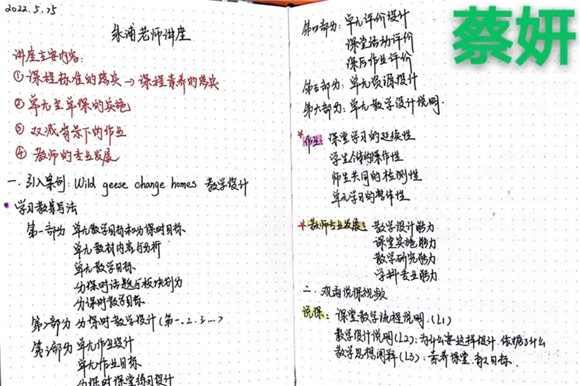 2022.5.25
朱浦老师讲座
讲座主要内容:
① 课程标准的落实 → 课程素养的落实
② 单元至单课的实施
③ 双减背景下的作业
④ 教师的专业发展
一. 引入案例: Wild geese change homes 教学设计
学习教案写法
第一部分 单元教学目标和分课时目标
单元教材内容与分析
单元教学目标
分课时话题与板块划分
分课时教学目标
第2部分 分课时教学设计 (第一.2.3…)
第3部分 单元作业设计
单元作业目标
分课时课堂练习设计
第四部分: 单元评价设计
课堂活动评价
课后作业评价
第五部分: 单元资源设计
第六部分: 单元教学设计说明.
作业: 课堂学习的延续性
学生个体的操作性
师生共同的检测性
单元学习的整体性
教师专业发展: 教学设计能力
课堂实施能力
教学研究能力
学科专业能力
二. 观看说课视频
说课: 课堂教学流程说明. (L1)
教学设计说明(L2): 为什么要这样设计. 依据是什么
教学思想阐释(L3): 素养课堂. 育人目标.
蔡妍